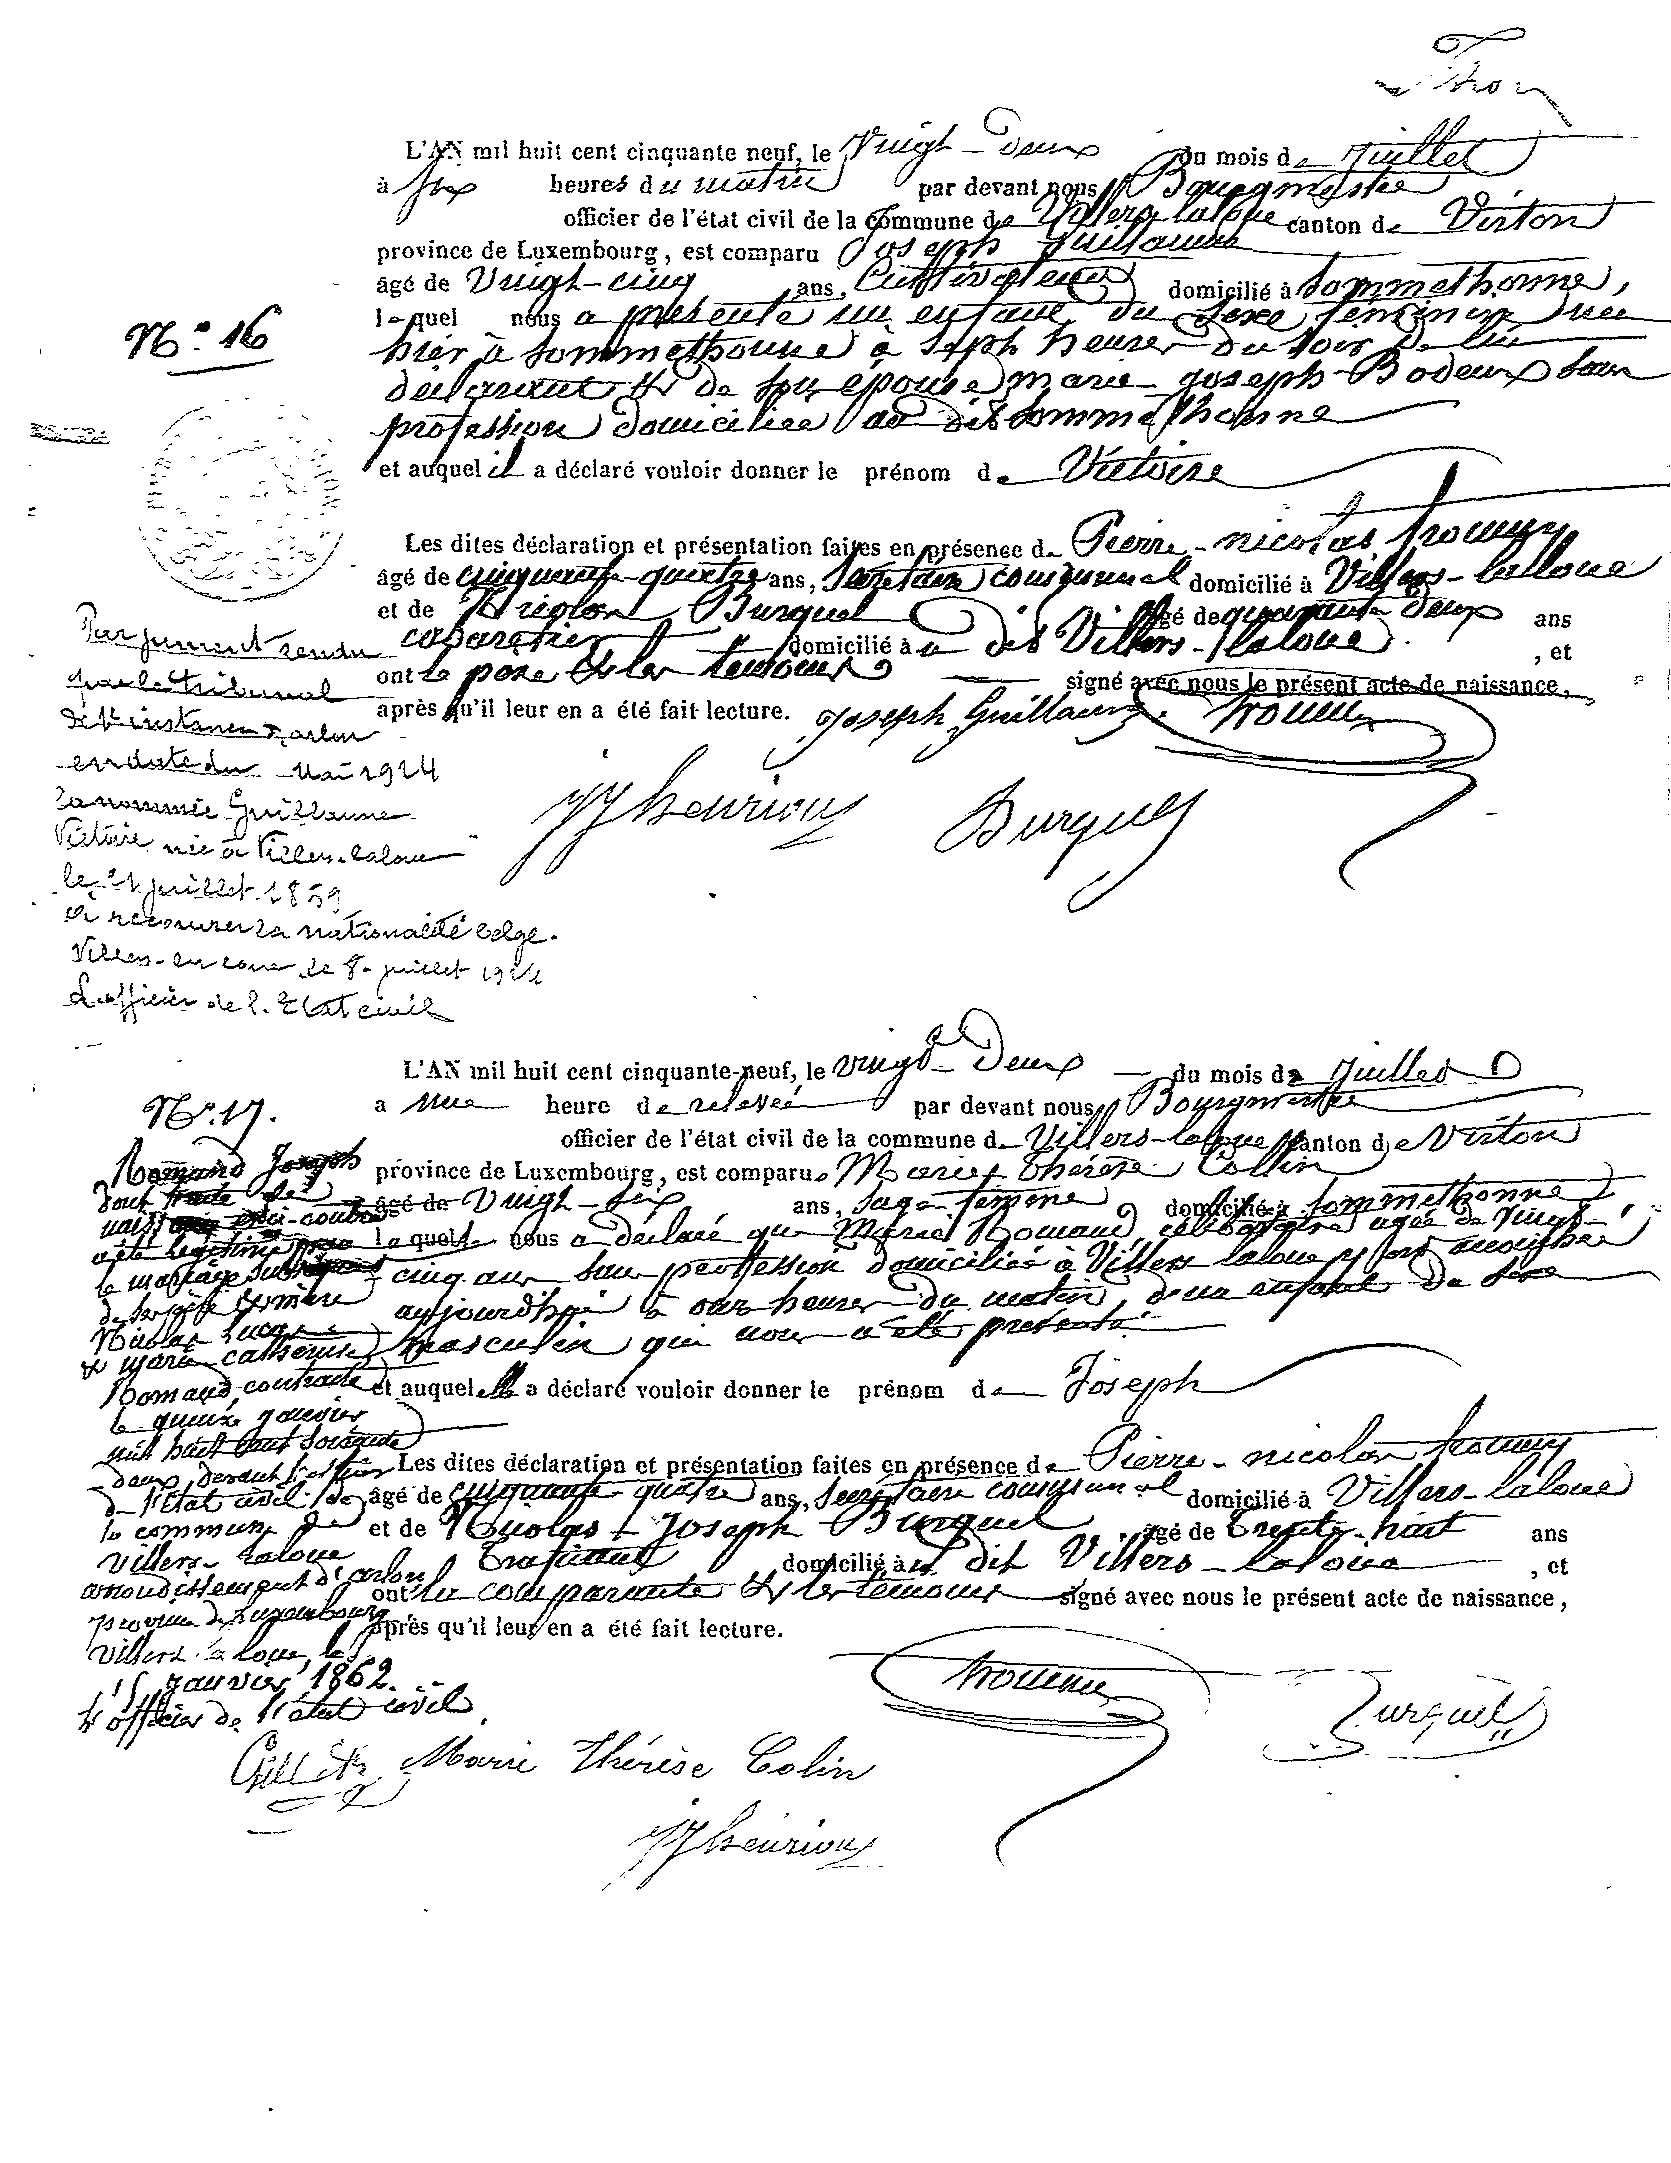 L'AN mil huit cent cinquante neuf, le Vingt-deux du mois de Juillet
à six heures du matin par devant nous Bourgmestre
officier de l'état civil de la commune de Villers-laloue canton de Virton
province de Luxembourg, est comparu Joseph Guillaume
âgé de Vingt-cinq ans, Cultivateur domicilié à Sommethonne,
lequel nous a présenté un enfant du sexe féminin née
N° 16
hier à Sommethonne à sept heures du soir de lui
déclarant et de son épouse Marie-Joseph Bodeux sans
profession domiciliée au dit Sommethonne
et auquel il a déclaré vouloir donner le prénom de Victoire
Les dites déclaration et présentation faites en présence de Pierre-nicolas
âgé de cinquante-quatre ans, Secrétaire communal domicilié à Villers-laloue
et de Burquel âgé de quarante deux ans
cabaretier domicilié à au dit Villers-laloue, et
ont le père et les témoins signé avec nous le présent acte de naissance,
après qu'il leur en a été fait lecture. Joseph Guillaume
JJ henrion Burquel
Par jugement rendu
par le tribunal
de 1e instance d'arlon
en date du mai 1924
la nommée Guillaume
Victoire née à Villers-laloue
le 21 juillet 1859
a recouvré la nationalité belge.
Villers-la-loue le 8 juillet 1924
L'officier de l'Etat civil
L'AN mil huit cent cinquante-neuf, le vingt-deux du mois de Juillet
N° 17.
a une heure de relevée par devant nous Bourgmestre
officier de l'état civil de la commune de Villers-laloue canton de Virton
province de Luxembourg, est comparue Marie-Thérèse Collin
âgé de Vingt-six ans, Sage-femme domicilié à Sommethonne
laquelle nous a déclaré que Marie Romand, célibataire agée de Vingt-
cinq ans sans proffession domiciliée à Villers laloue est accouchée
aujourd'hui à onze heures du matin, d'un enfant du sexe
masculin qui nous a été présenté
et auquel elle a déclaré vouloir donner le prénom de Joseph
Les dites déclaration et présentation faites en présence de Pierre-nicolas
âgé de cinquante quatre ans, Secrétaire communal domicilié à Villers-laloue
et de Nicolas-Joseph Burquel âgé de Trente-huit ans
domicilié à au dit Villers-laloue, et
ont la comparante et les témoins signé avec nous le présent acte de naissance,
après qu'il leur en a été fait lecture.
Romand Joseph
dont
naissance ci-contre
a été légitimé par
le mariage subséquent
de ses père et mère
Nicolas Lucas
et marie catherine
Romand, contracté
le quinze janvier
mil huit cent soixante
deux, devant l'officier
de l'état civil de
la commune de
Villers-laloue
arrondissement d'arlon
province de Luxembourg
Villers-la loue, le
15 janvier 1862.
L'officier de l'état civil
Marie Thérèse Colin
Burquel
JJ henrion